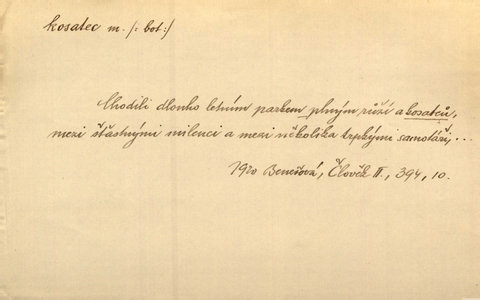 kosatec m. /: bot :/
Chodili dlouho letním parkem plným růží a kosatců,
mezi šťastnými milenci a mezi několika trpkými samotáři, ...
1920 Benešová, Člověk II., 394, 10.